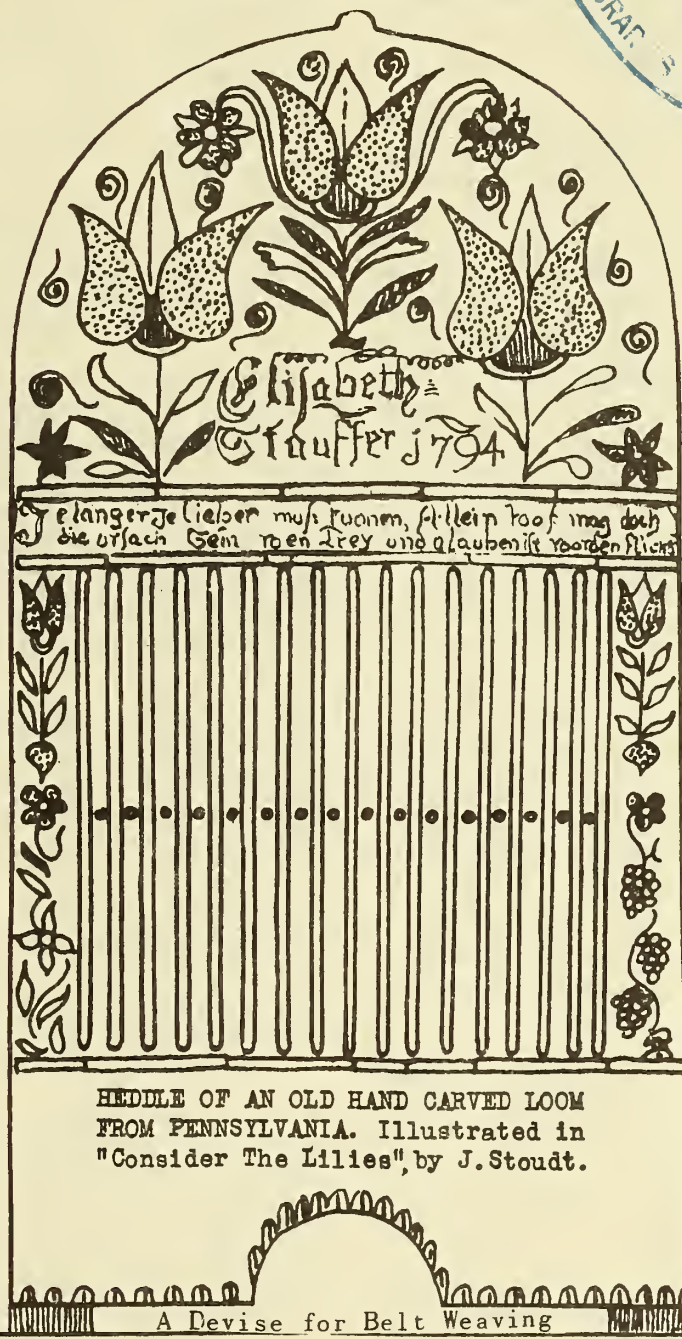 Elisabeth=
Stauffer j794
Je langer Je lieber muß Allein mag doch
die ursach Trey und glauben ist worden
HEDDLE OF AN OLD HAND CARVED LOOM
FROM PENNSYLVANIA. Illustrated in
"Consider The Lilies", by J.Stoudt.
A Devise for Belt Weaving